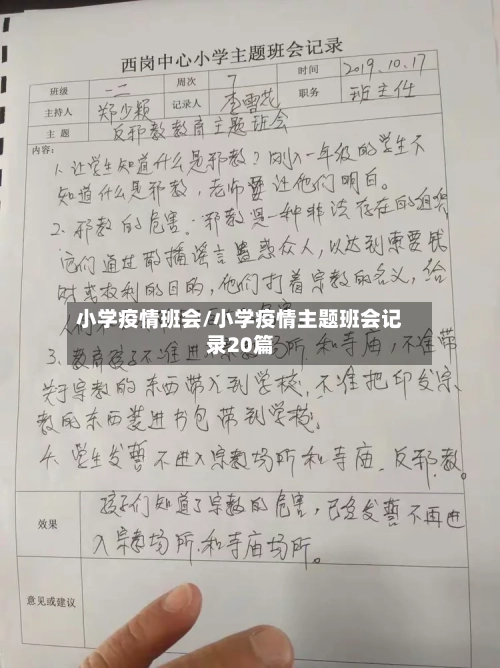 西岗中心小学主题班会记录
班级 一二 周次 7 时间 2019.10.17
主持人 郑少颖 记录人 李雪花 职务 班主任
主题 反邪教教育主题班会
内容:
1. 让学生知道什么是邪教?刚入一年级的学生不
知道什么是邪教,老师要让他们明白。
2. 邪教的危害:邪教是一种非法存在的组织
它们通过散播谣言蛊惑众人,以达到索要钱
财或权利的目的,他们打着宗教的名义,给
小学疫情班会/小学疫情主题班会记
录20篇
3. 教育孩子不准进 场所和寺庙,不准带
关于宗教的东西带入到学校,不准把印发宗
教的东西装进书包带到学校。
4. 学生发誓不进入宗教场所和寺庙。反邪教。
效果 孩子们知道了宗教的危害,已经发誓不再进
入宗教场所和寺庙场所。
意见或建议